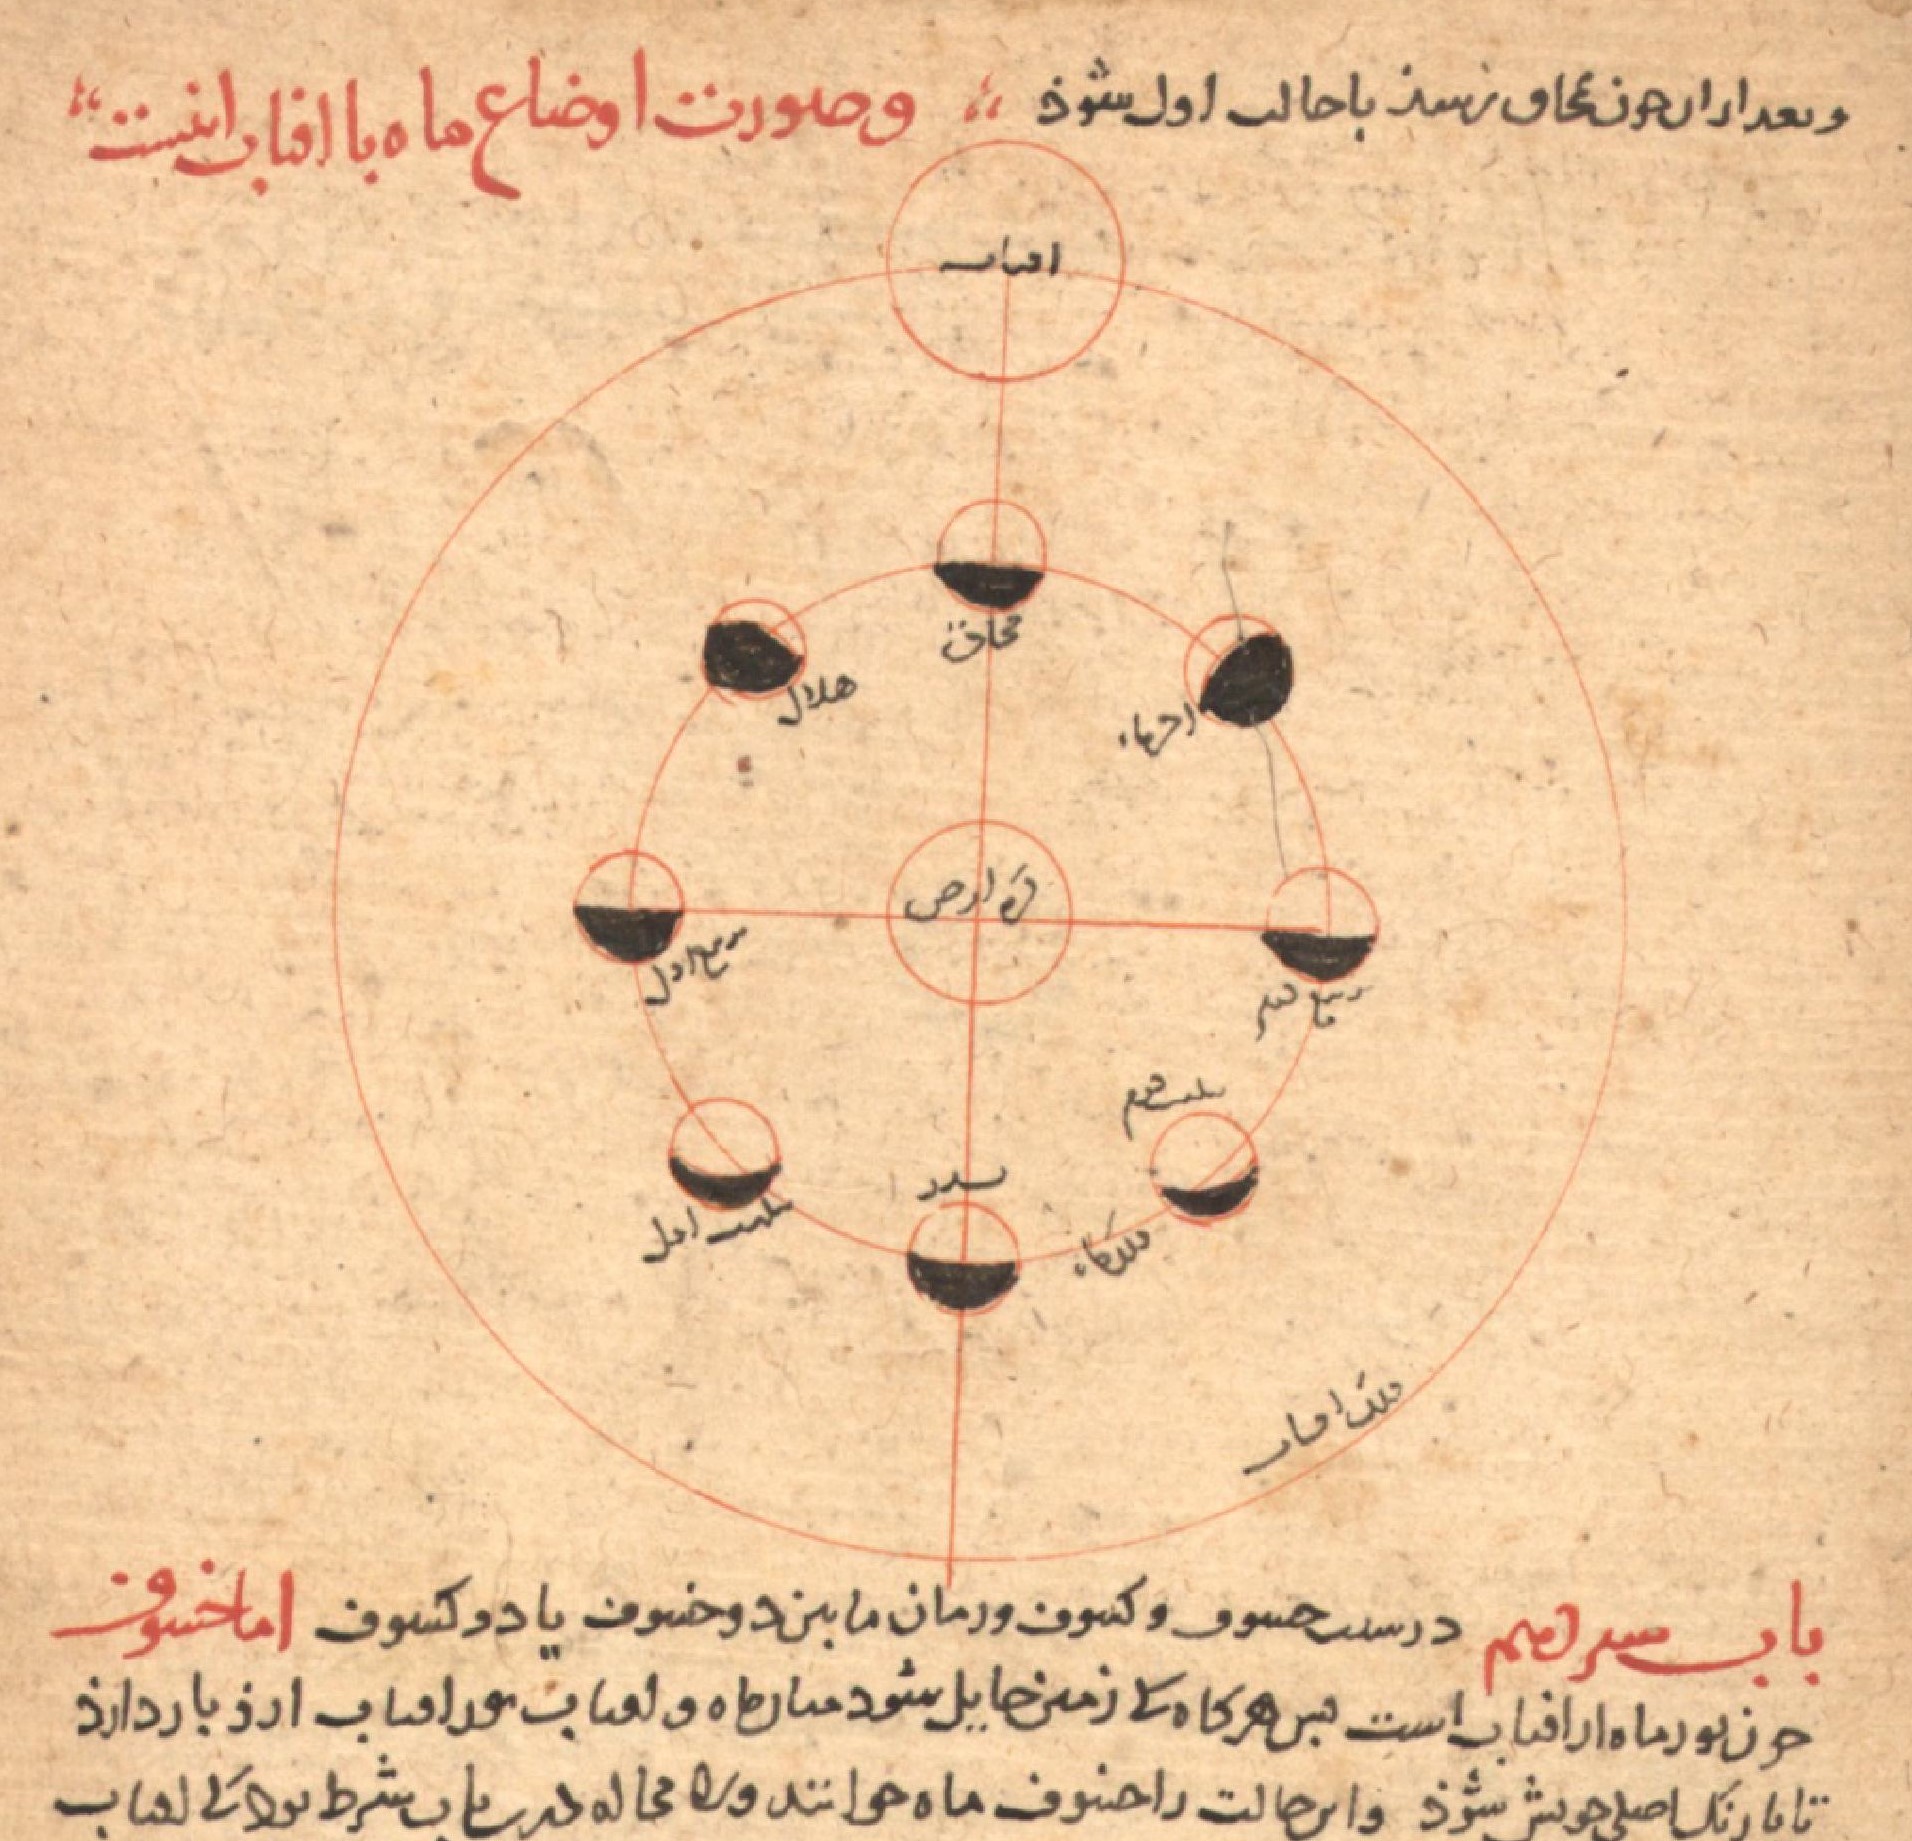 وبعد ازان چون بمحاق رسذ باحالت اول شوذ وصورت اوضاع ماه با افتاب اینست
افتاب
محاق
هلال
اخر ماه
کره ارض
تربیع اول
تربیع دوم
تثلیث دوم
بدر
تثلیث اول
فلک ماه
فلک افتاب
باب سیزدهم در سبب خسوف و کسوف وزمان مابین دوخسوف یا دو کسوف اما خسوف
چون نور ماه از افتاب است پس هرگاه کے زمین حایل شود میان ماه و افتاب نور افتاب ازو باز دارذ
تا ماه رنک اصلی خویش شوذ واین حالت را خسوف ماه خوانند و لا محاله درین باب شرط بوذ کے افتاب